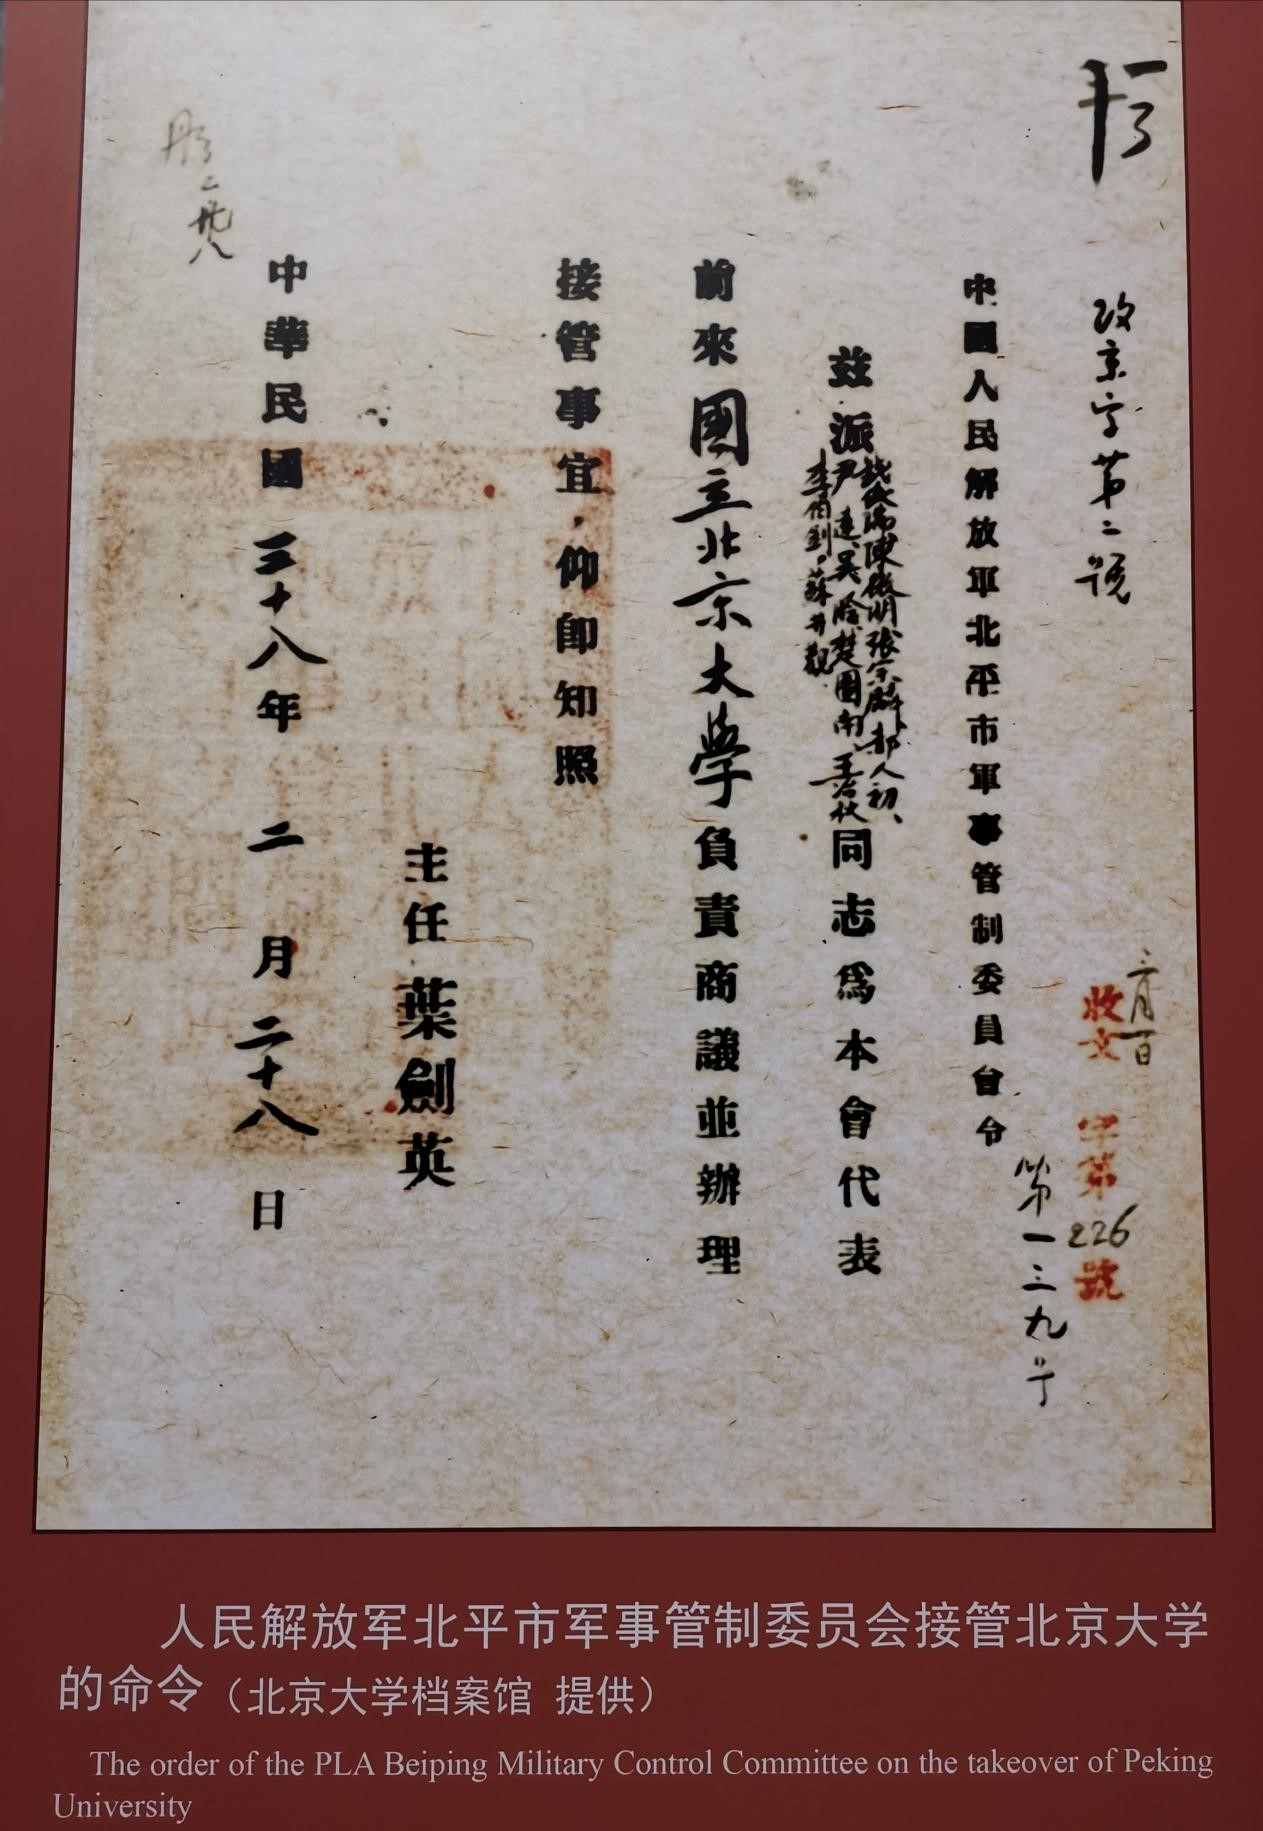 改京字第二號
三月一日
收文 字第226號
中國人民解放軍北平市軍事管制委員會令
第一三九号
茲派
錢俊瑞、陳微明、張宗麟、郝人初、
尹達、吳晗、楚圖南、王冶秋
李伯釗、蘇井觀
同志爲本會代表
前來國立北京大學負責商議並辦理
接管事宜，仰即知照
主任葉劍英
中華民國三十八年二月二十八日
二 廿八
人民解放军北平市军事管制委员会接管北京大学
的命令（北京大学档案馆 提供）
The order of the PLA Beiping Military Control Committee on the takeover of Peking
University